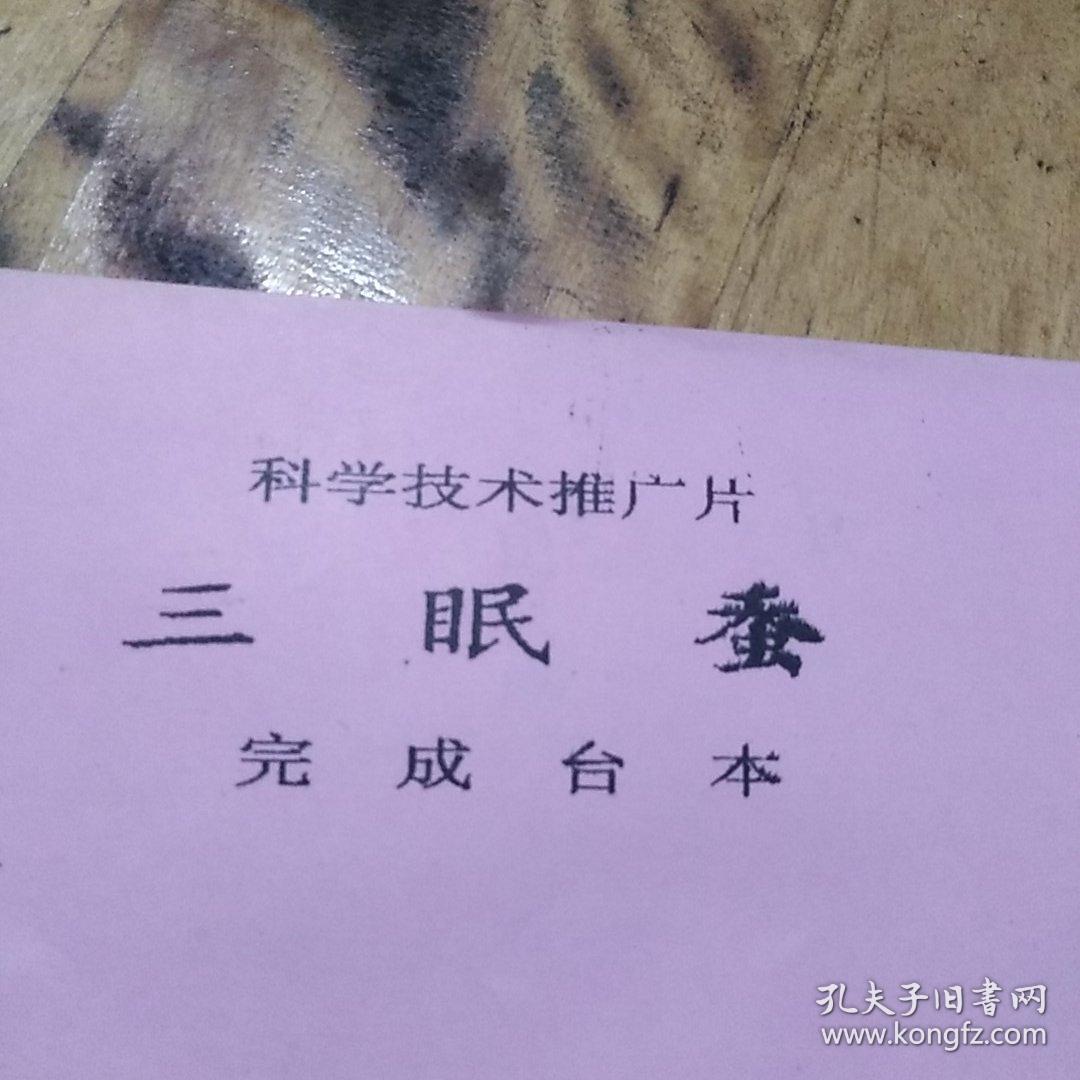 科学技术推广片
三眠蚕
完成台本
孔夫子旧書网
www.kongfz.com